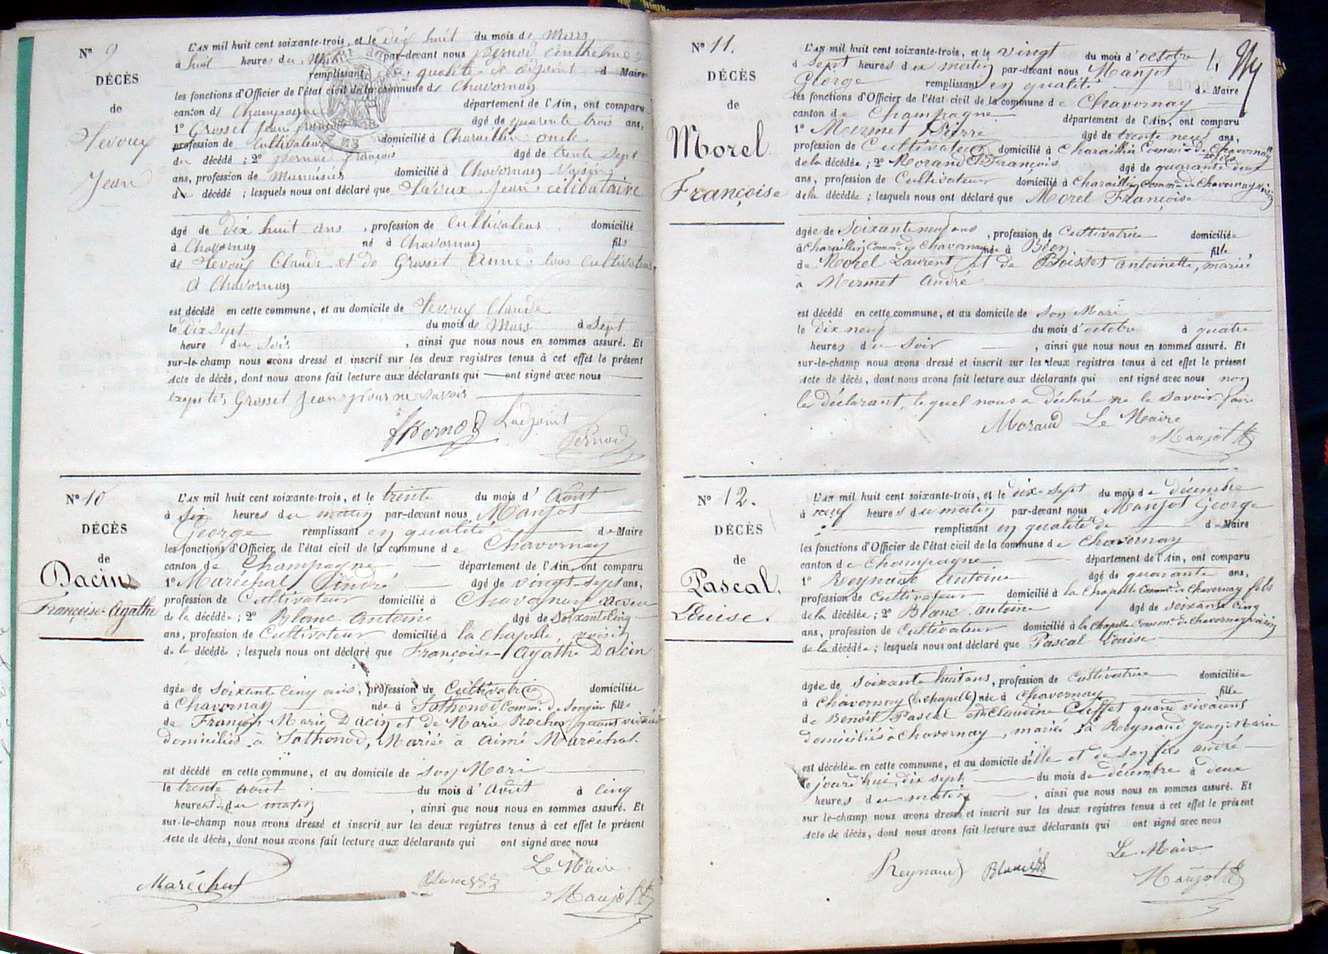 N° 9
DÉCÈS
de
Jean
L'AN mil huit cent soixante-trois, et le dix huit du mois de Mars
à huit heures du par-devant nous
remplissant qualité d'adjoint d Maire
les fonctions d'Officier de l'état civil de la commune de Chavornay
canton de Champagne département de l'Ain, ont comparu
1° Grosset Jean âgé de quarante trois ans,
profession de Cultivateur domicilié à Charaillin oncle
du décédé ; 2° François âgé de trente sept
ans, profession de Menuisier domicilié à Chavornay voisin
du décédé ; lesquels nous ont déclaré que Jean célibataire
âgé de Dix huit ans , profession de Cultivateur domicilié
à Chavornay né à Chavornay fils
de Claude et de Grosset Anne tous cultivateurs
à Chavornay
est décédé en cette commune, et au domicile de Claude
le dix sept du mois de Mars à sept
heure du soir , ainsi que nous nous en sommes assuré. Et
sur-le-champ nous avons dressé et inscrit sur les deux registres tenus à cet effet le présent
Acte de décès, dont nous avons fait lecture aux déclarants qui ont signé avec nous
Grosset Jean pour ne savoir
L'adjoint
N° 10
DÉCÈS
de
Dacin
Françoise-Agathe
L'AN mil huit cent soixante-trois, et le trente du mois d' Août
à six heures du matin par-devant nous Manjot
George remplissant en qualité de Maire
les fonctions d'Officier de l'état civil de la commune de Chavornay
canton de Champagne département de l'Ain, ont comparu
1° Maréchal André âgé de vingt-sept ans,
profession de Cultivateur domicilié à Chavornay
de la décédée ; 2° Blanc Antoine âgé de Soixante-Cinq
ans, profession de Cultivateur domicilié à la Chapelle, voisin
de la décédée ; lesquels nous ont déclaré que Françoise-Agathe Dacin
âgée de soixante cinq ans, profession de Cultivatrice domiciliée
à Chavornay née à Sothonod, Comm. de Songieu fille
de François Marie Dacin et de Marie Rochex quand vivaient
domiciliés à Sothonod, Mariée à Aimé Maréchal.
est décédé en cette commune, et au domicile de son Mari
le trente août du mois d'Août à cinq
heures du matin , ainsi que nous nous en sommes assuré. Et
sur-le-champ nous avons dressé et inscrit sur les deux registres tenus à cet effet le présent
Acte de décès, dont nous avons fait lecture aux déclarants qui ont signé avec nous
Le Maire
Maréchal Blanc Manjot
N° 11.
DÉCÈS
de
Morel
Françoise
L'AN mil huit cent soixante-trois, et le vingt du mois d'octobre
à sept heures du matin par-devant nous Manjot
George remplissant en qualité de Maire
les fonctions d'Officier de l'état civil de la commune de Chavornay
canton de Champagne département de l'Ain, ont comparu
1° Mermet Pierre âgé de trente neuf ans,
profession de Cultivateur domicilié à Charaillin Commune de Chavornay
de la décédée ; 2° Morand François âgé de quarante deux
ans, profession de Cultivateur domicilié à Charaillin Comm. de Chavornay voisin
de la décédée ; lesquels nous ont déclaré que Morel Françoise
âgée de Soixante neuf ans , profession de Cultivatrice domiciliée
à Charaillin Comm. de Chavornay née à Béon fille
de Morel Laurent et de Boisset Antoinette, mariée
à Mermet André
est décédé en cette commune, et au domicile de son Mari
le dix neuf du mois d'octobre à quatre
heures du soir , ainsi que nous nous en sommes assuré. Et
sur-le-champ nous avons dressé et inscrit sur les deux registres tenus à cet effet le présent
Acte de décès, dont nous avons fait lecture aux déclarants qui ont signé avec nous non
le déclarant, lequel nous a déclaré ne le savoir faire
Morand Le Maire
Manjot
N° 12.
DÉCÈS
de
Pascal
Louise.
L'AN mil huit cent soixante-trois, et le dix sept du mois de décembre
à neuf heures du matin par-devant nous Manjot George
remplissant en qualité de d Maire
les fonctions d'Officier de l'état civil de la commune de Chavornay
canton de Champagne département de l'Ain, ont comparu
1° Reynaud Antoine âgé de quarante ans,
profession de Cultivateur domicilié à la Chapelle Comm. de Chavornay fils
de la décédée ; 2° Blanc Antoine âgé de soixante cinq
ans, profession de Cultivateur domicilié à la Chapelle Comm. de Chavornay voisin
de la décédée ; lesquels nous ont déclaré que Pascal Louise
âgée de soixante huit ans, profession de Cultivatrice domiciliée
à Chavornay (la Chapelle) née à Chavornay fille
de Benoit Pascal et Claudine quand vivaient
domiciliés à Chavornay, mariée à Reynaud Jean-Marie
est décédée en cette commune, et au domicile d'elle et de son fils André
le jourd'hui dix sept du mois de décembre à deux
heures du matin , ainsi que nous nous en sommes assuré. Et
sur-le-champ nous avons dressé et inscrit sur les deux registres tenus à cet effet le présent
Acte de décès, dont nous avons fait lecture aux déclarants qui ont signé avec nous
Le Maire
Reynaud Blanc Manjot